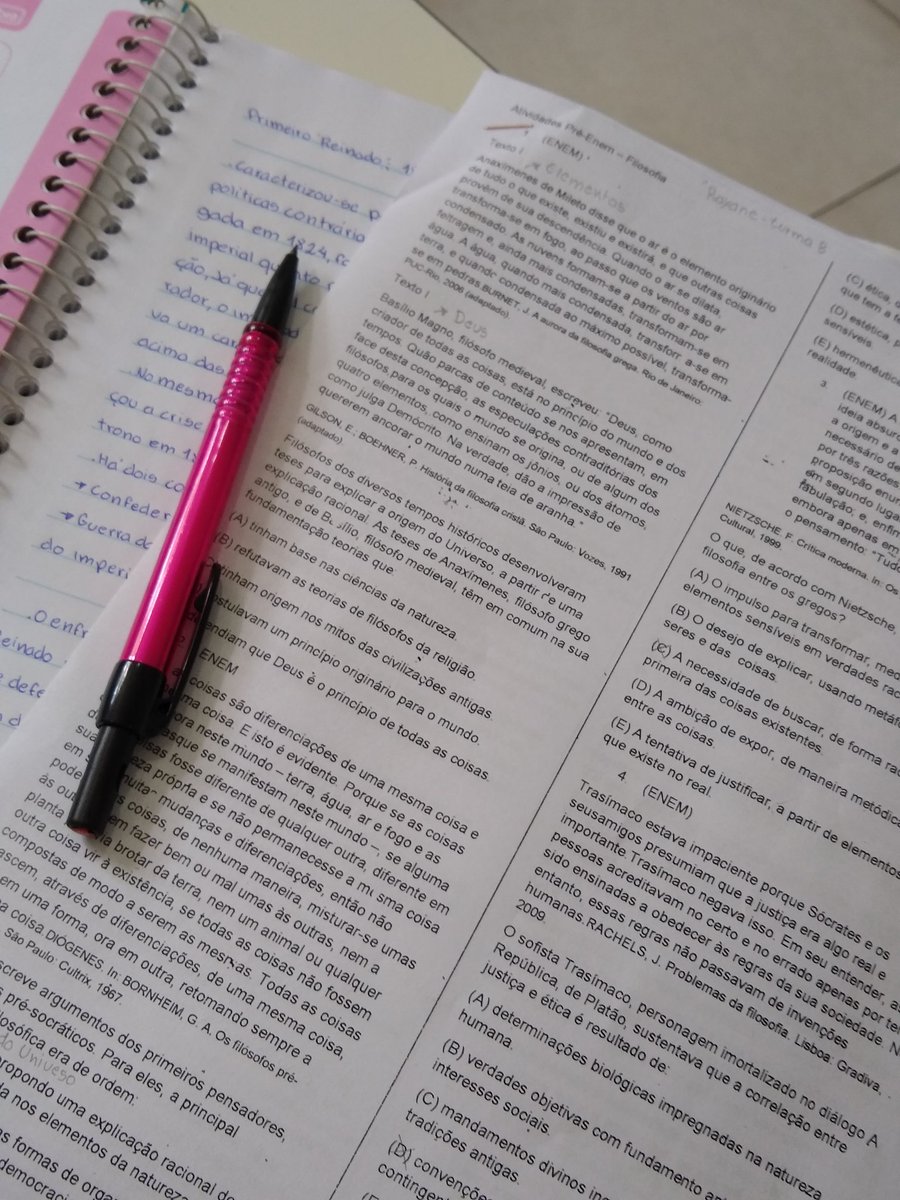 Primeiro Reinado:
. Caracterizou-se
políticas contrário
gada em 1824,
imperial
ção, já que
rador, o
va um
acima das
No mesmo
çou a crise
trono em
. Há dois
→ Confeder
→ Guerra da
do imperi
. O enfr
Reinado
defe
Atividades Pré-Enem – Filosofia
Rayane - turma B
1 (ENEM)
Texto I → Elementos
Anaxímenes de Mileto disse que o ar é o elemento originário
de tudo o que existe, existiu e existirá, e que outras coisas
provêm de sua descendência. Quando o ar se dilata,
transforma-se em fogo, ao passo que os ventos são ar
condensado. As nuvens formam-se a partir do ar por
feltragem e, ainda mais condensadas, transformam-se em
água. A água, quando mais condensada, transforma-se em
terra, e quando condensada ao máximo possível, transforma-
se em pedras.BURNET, J. A aurora da filosofia grega. Rio de Janeiro:
PUC-Rio, 2006 (adaptado).
Texto I → Deus
Basílio Magno, filósofo medieval, escreveu: "Deus, como
criador de todas as coisas, está no princípio do mundo e dos
tempos. Quão parcas de conteúdo se nos apresentam, em
face desta concepção, as especulações contraditórias dos
filósofos,para os quais o mundo se origina, ou de algum dos
quatro elementos, como ensinam os jônios, ou dos átomos,
como julga Demócrito. Na verdade, dão a impressão de
quererem ancorar o mundo numa teia de aranha."
GILSON, E.: BOEHNER, P. História da filosofia cristã. São Paulo: Vozes, 1991
(adaptado).
Filósofos dos diversos tempos históricos desenvolveram
teses para explicar a origem do Universo, a partir de uma
explicação racional. As teses de Anaxímenes, filósofo grego
antigo, e de Basílio, filósofo medieval, têm em comum na sua
fundamentação teorias que
(A) tinham base nas ciências da natureza.
(B) refutavam as teorias de filósofos da religião.
tinham origem nos mitos das civilizações antigas.
postulavam um princípio originário para o mundo.
defendiam que Deus é o princípio de todas as coisas.
ENEM
coisas são diferenciações de uma mesma coisa e
mesma coisa. E isto é evidente. Porque se as coisas
agora neste mundo – terra, água, ar e fogo e as
coisas que se manifestam neste mundo –, se alguma
coisas fosse diferente de qualquer outra, diferente em
sua natureza própria e se não permanecesse a mesma coisa
em suas muitas mudanças e diferenciações, então não
coisas, de nenhuma maneira, misturar-se umas
às outras, nem fazer bem ou mal umas às outras, nem a
planta brotar da terra, nem um animal ou qualquer
outra coisa vir à existência, se todas as coisas não fossem
compostas de modo a serem as mesmas. Todas as coisas
nascem, através de diferenciações, de uma mesma coisa,
em uma forma, ora em outra, retornando sempre a
coisa.DIÓGENES. In: BORNHEIM, G. A. Os filósofos pré-
São Paulo: Cultrix, 1967.
descreve argumentos dos primeiros pensadores,
pré-socráticos. Para eles, a principal
filosófica era de ordem:
do Universo
propondo uma explicação racional do
nos elementos da natureza
as formas de
democraci
(C) ética,
que tem a
(D) estética,
sensíveis.
(E) hermenêutica
realidade
3 (ENEM) A
ideia absurd
a origem e a
necessário de
por três razões
proposição enun
em segundo lugar
fabulação; e, enfim
embora apenas em
o pensamento: "Tudo
NIETZSCHE, F. Crítica moderna. In: Os
Cultural, 1999.
O que, de acordo com Nietzsche,
filosofia entre os gregos?
(A) O impulso para transformar,
elementos sensíveis em verdades
(B) O desejo de explicar, usando
seres e das coisas.
(C) A necessidade de buscar, de forma
primeira das coisas existentes.
(D) A ambição de expor, de maneira metódica
entre as coisas.
(E) A tentativa de justificar, a partir de elementos
que existe no real.
4 (ENEM)
Trasímaco estava impaciente porque Sócrates e os
seusamigos presumiam que a justiça era algo real e
importante. Trasímaco negava isso. Em seu entender, as
pessoas acreditavam no certo e no errado apenas por
sido ensinadas a obedecer às regras da sua sociedade. N
entanto, essas regras não passavam de invenções
humanas.RACHELS, J. Problemas da filosofia. Lisboa: Gradiva,
2009
O sofista Trasímaco, personagem imortalizado no diálogo A
República, de Platão, sustentava que a correlação entre
justiça e ética é resultado de:
(A) determinações biológicas impregnadas na natureza
humana.
(B) verdades objetivas com fundamento
interesses sociais.
(C) mandamentos divinos
tradições antigas.
(D) convenções
contingen